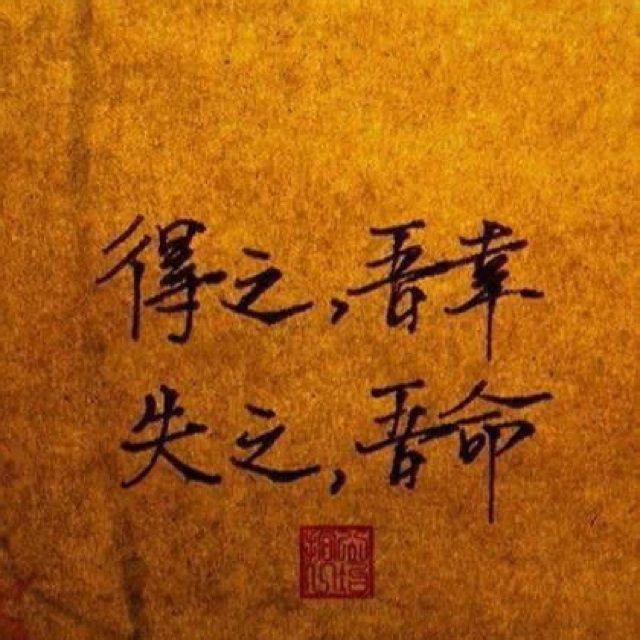 得之，吾幸
失之，吾命